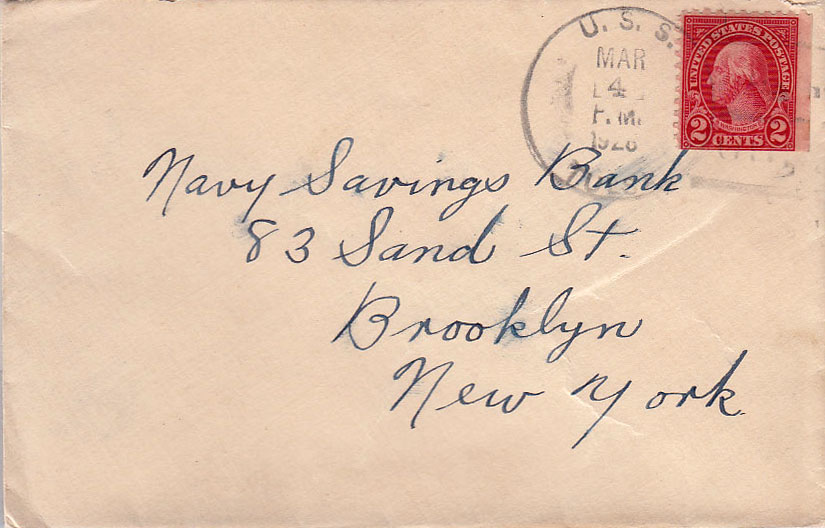 U. S. S.
MAR
4
P. M.
1928
UNITED STATES POSTAGE
WASHINGTON
2 CENTS 2
Navy Savings Bank
83 Sand St.
Brooklyn
New York